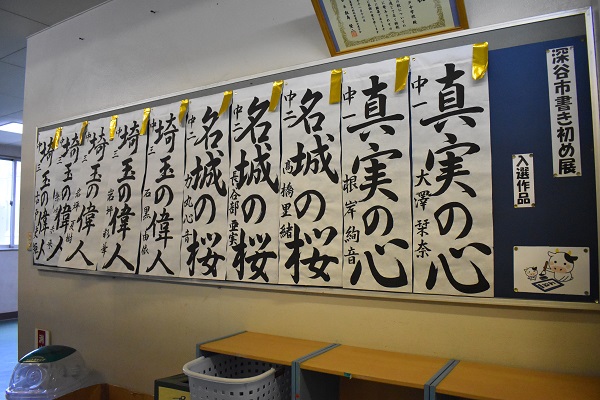 深谷市書き初め展
入選作品
真実の心
中一 大澤栞奈
真実の心
中一 根岸絢音
名城の桜
中二 高橋里緒
名城の桜
中二 長谷部
名城の桜
中二 力丸心音
埼玉の偉人
中三 石黒由依
埼玉の偉人
中三
埼玉の偉人
中三
埼玉の偉人
埼玉の偉人